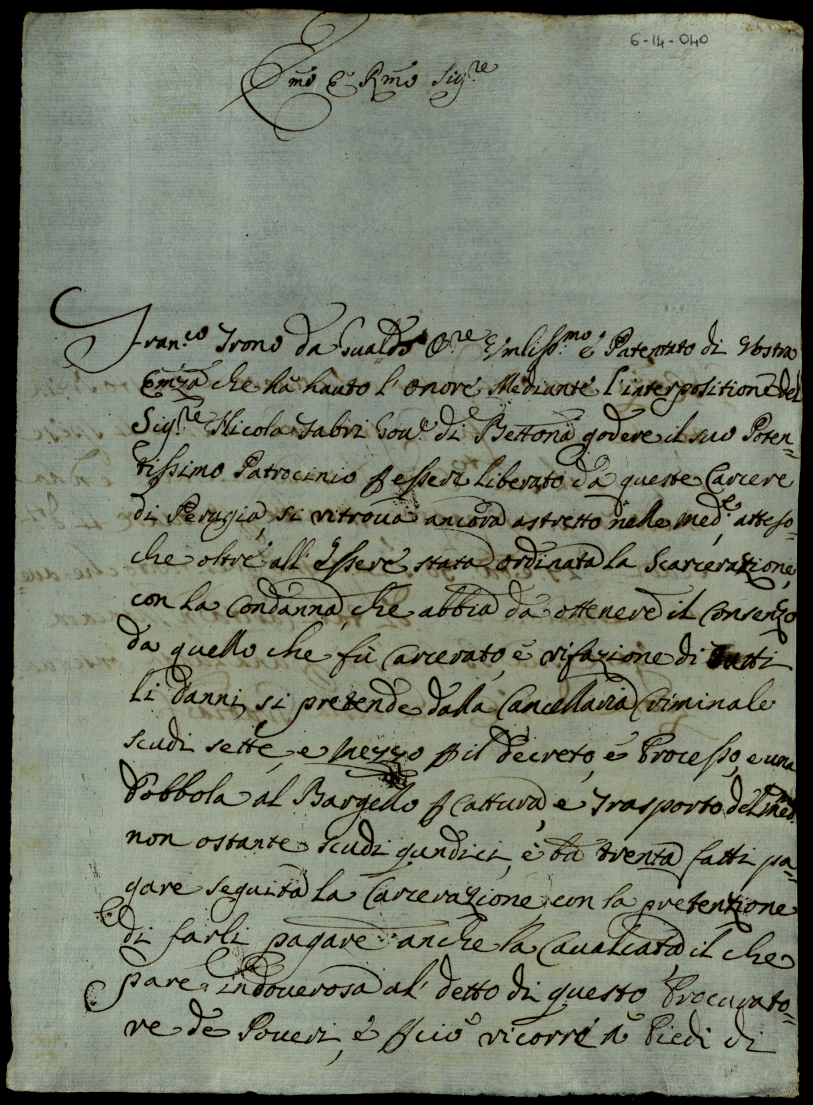 6-14-040
Emo e Rmo Sig.re
Fran.co Trono da Gualdo O.re Umliss.mo è Patentato di Vostra
Emza che hà hauto l'onore Mediante l'interpositione del
Sig.re Nicola Fabri Gou.e di Bettona godere il suo Poten=
tissimo Patrocinio p essere liberato da queste Carcere
di Perugia, si ritroua ancora astretto nelle med.e atteso=
che oltre all'Essere stata ordinata la Scarcerazione,
con la condanna, che abbia da ottenere il Consenzo
da quello che fù Carcerato, è rifazione di Tutti
li danni, si pretende dalla Cancellaria Criminale
scudi sette, e mezzo p il decreto, è Processo, e una
Dobbola al Bargello p cattura, è Trasporto del med.
non ostante scudi qundici, è ba trenta fatti pa=
gare seguita la Carcerazione con la pretenzione
di farli pagare anche la Caualcata, il che
pare indouerosa al' detto di questo Procurato=
re de Poueri, è p ciò ricorre à Piedi di